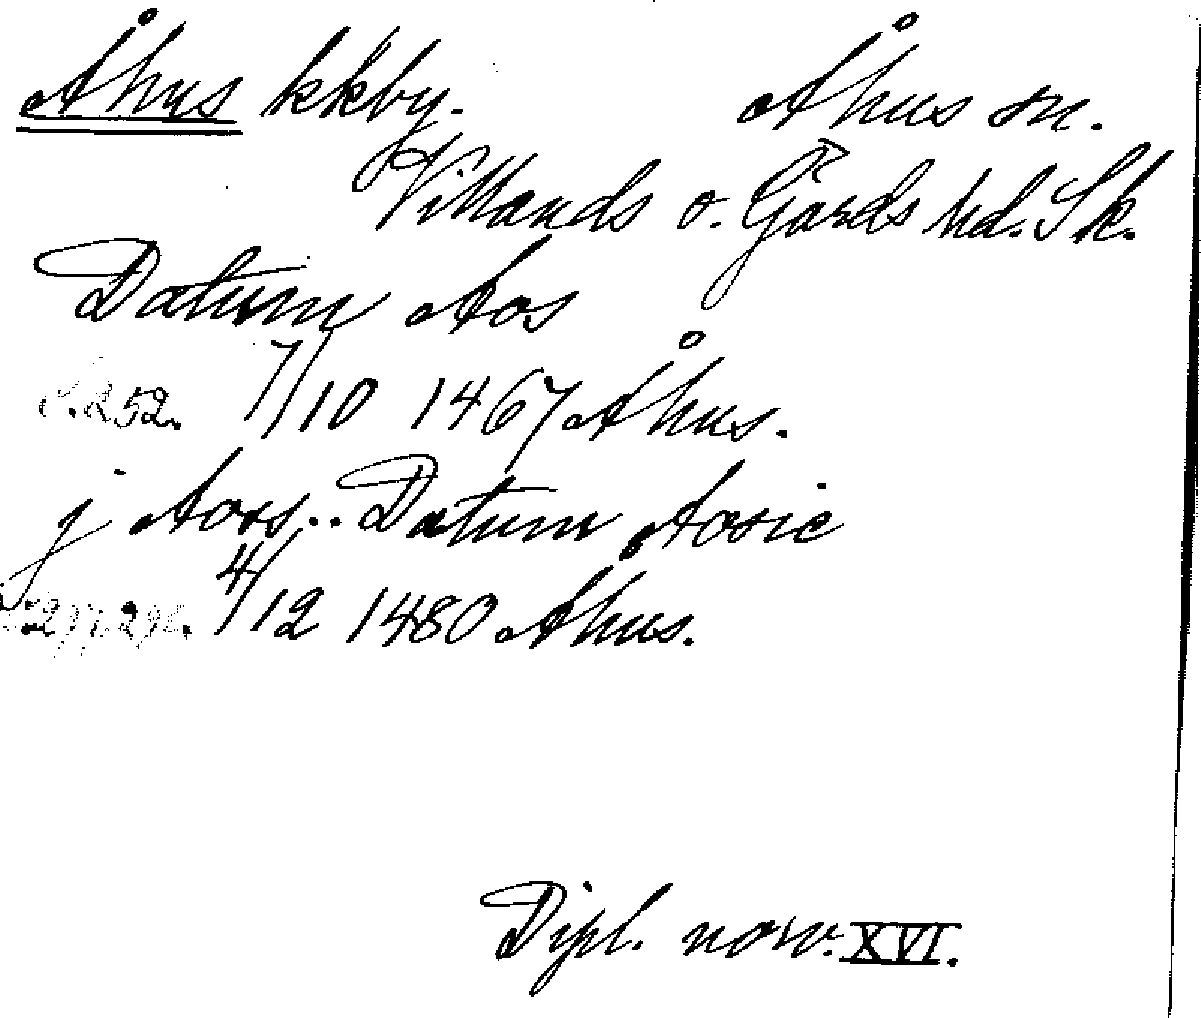 Åhus kkby. Åhus sn.
Villands o. Gärds hd. Sk.
Datum Aos
S. 252. 7/10 1467 Åhus.
j Aoss.. Datum Aosie
4/12 1480 Åhus.
Dipl. norv. XVI.